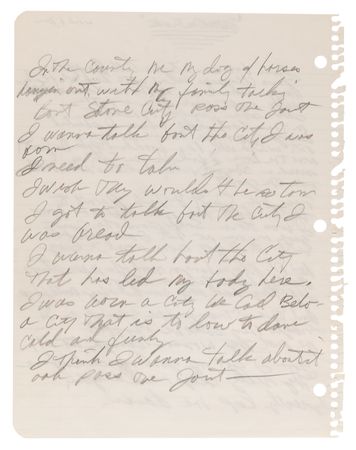 In the County me my dog & horses
hangin out with my family talkin
bout Stone City pass the joint
I wanna talk bout the City I was
born
I need to talk
I wish they wouldn't be so torn
I got to talk bout the City I
was bread
I wanna talk bout the City
That has led my body here.
I was born a City we call Below
a City that is to low to dare
cold an funky
I think I wanna talk about it
ooh pass the joint